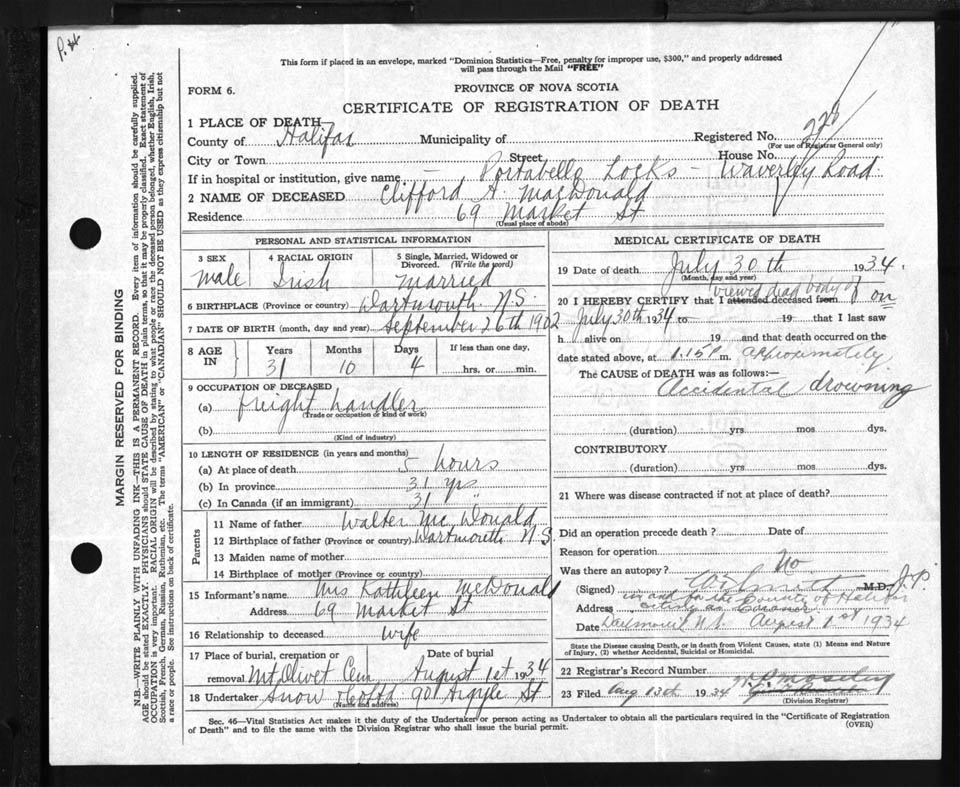 P.
This form if placed in an envelope, marked "Dominion Statistics—Free, penalty for improper use, $300," and properly addressed
will pass through the Mail "FREE"
FORM 6.
PROVINCE OF NOVA SCOTIA
CERTIFICATE OF REGISTRATION OF DEATH
1 PLACE OF DEATH
County of Halifax Municipality of Registered No. 228
(For use of Registrar General only)
City or Town Street House No.
If in hospital or institution, give name — Portabello Locks - Waverley Road.
2 NAME OF DECEASED Clifford A. MacDonald
Residence 69 Market St
(Usual place of abode)
PERSONAL AND STATISTICAL INFORMATION
3 SEX 4 RACIAL ORIGIN 5 Single, Married, Widowed or Divorced. (Write the word)
male Irish Married
6 BIRTHPLACE (Province or country) Dartmouth N.S.
7 DATE OF BIRTH (month, day and year) September 26th 1902
8 AGE IN Years Months Days If less than one day,
31 10 4 hrs. or min.
9 OCCUPATION OF DECEASED
(a) freight handler
(Trade or occupation or kind of work)
(b)
(Kind of industry)
10 LENGTH OF RESIDENCE (in years and months)
(a) At place of death 5 hours
(b) In province 31 yrs
(c) In Canada (if an immigrant) 31 "
Parents
11 Name of father Walter McDonald
12 Birthplace of father (Province or country) Dartmouth N.S.
13 Maiden name of mother
14 Birthplace of mother (Province or country)
15 Informant's name Mrs Kathleen McDonald
Address 69 Market St
16 Relationship to deceased wife
17 Place of burial, cremation or removal Date of burial
Mt Olivet Cem August 1st 1934
18 Undertaker Snow & Co Ltd 90 Argyle St
(Name and address)
MEDICAL CERTIFICATE OF DEATH
19 Date of death July 30th 1934.
(Month, day and year)
viewed dead body of
20 I HEREBY CERTIFY that I attended deceased from on
July 30th 1934 to 19 that I last saw
h alive on 19 and that death occurred on the
date stated above, at 1.15 P. m. approximately
The CAUSE of DEATH was as follows:—
Accidental drowning
(duration) yrs mos dys.
CONTRIBUTORY
(duration) yrs mos dys.
21 Where was disease contracted if not at place of death?
Did an operation precede death? Date of
Reason for operation
Was there an autopsy? No
(Signed) M.D. J.P.
in and for the County of Halifax
Address acting as Coroner
Date Dartmouth N.S. August 1st 1934
State the Disease causing Death, or in death from Violent Causes, state (1) Means and Nature
of Injury, (2) whether Accidental, Suicidal or Homicidal.
22 Registrar's Record Number
23 Filed Aug 13th 1934
(Division Registrar)
Sec. 46—Vital Statistics Act makes it the duty of the Undertaker or person acting as Undertaker to obtain all the particulars required in the "Certificate of Registration
of Death" and to file the same with the Division Registrar who shall issue the burial permit. (OVER)
MARGIN RESERVED FOR BINDING
N.B.—WRITE PLAINLY WITH UNFADING INK—THIS IS A PERMANENT RECORD. Every item of information should be carefully supplied.
AGE should be stated EXACTLY. PHYSICIANS should STATE CAUSE OF DEATH in plain terms, so that it may be properly classified. Exact statement of
OCCUPATION is very important. RACIAL ORIGIN will be described by stating to what people or race the deceased person belonged, whether English, Irish,
Scottish, French, German, Russian, Ruthenian, etc. The terms "AMERICAN" or "CANADIAN" SHOULD NOT BE USED as they express citizenship but not
a race or people. See instructions on back of certificate.